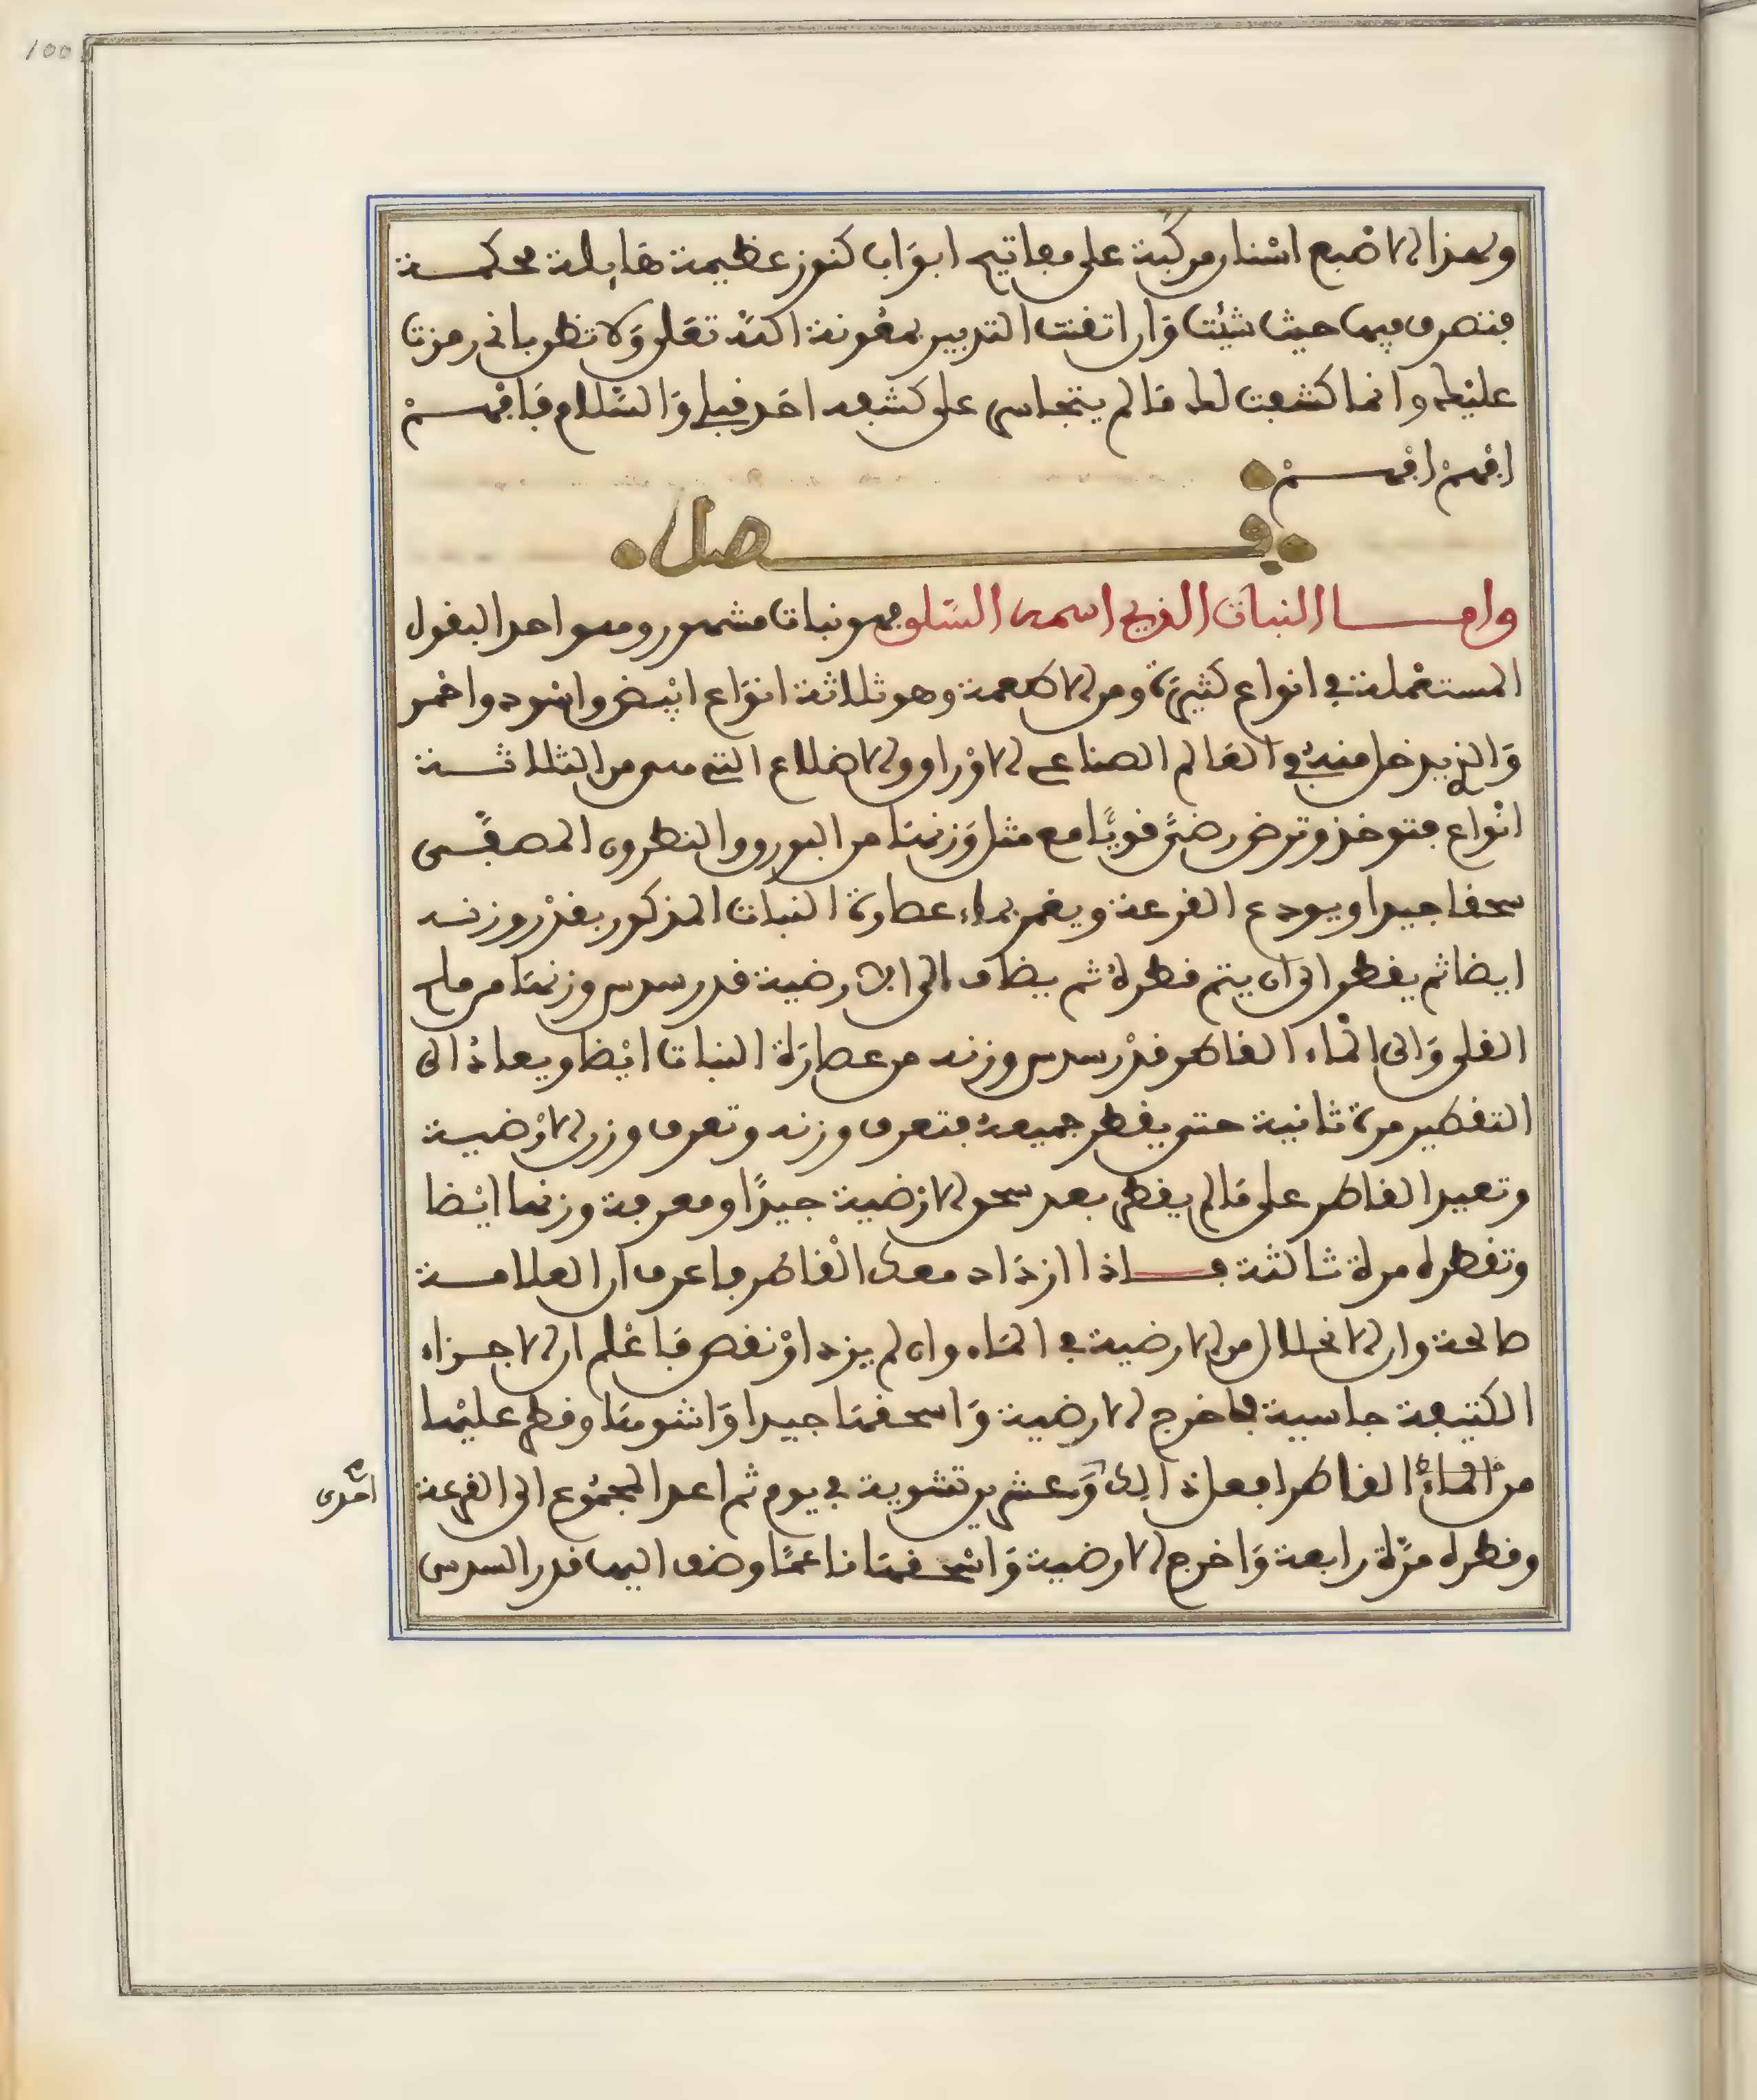 100
ولهذا الاصبع اسنار مركبة على مفاتيح ابواب كنوز عظيمة هايلة محكمة
فتتصرف فيها حيث شئت وان اتقنت التدبير بمعونة الله تعلى ولا تظن باني رمزت
عليك وانما كشفت لك ما لم يتجاسر على كشفه احد قبلي والسلام فافهم
افهم افهم
فصل
واما النبات الذي اسمه السلق فهو نبات مشهور وهو احد البقول
المستعملة في انواع كثيرة ومن الاطعمة وهو ثلاثة انواع ابيض واسود واحمر
والذي يدخل منه في العالم الصناعي الاوراق والاضلاع التي هي من الثلاثة
انواع فتوخذ وترض رضا قويا مع مثل وزنها من البورق والنطرون المصفى
سحقا جيدا ويودع القرعة ويغمر بماء عصارة النبات المذكور بقدر وزنه
ايضا ثم يقطر الى ان يتم قطره ثم يضاف الى الارضية قدر سدس وزنها من ملح
القلي والى الماء القاطر قدر سدس وزنه من عصارة النبات ايضا ويعاد الى
التقطير مرة ثانية حتى يقطر جميعه فتعرف وزنه وتعرف وزن الارضية
وتعيد القاطر على ما لم يقطر بعد سحق الارضية جيدا ومعرفة وزنها ايضا
وتقطره مرة ثالثة فاذا ازداد معك القاطر فاعرف ان العلامة
صالحة وان الانحلال من الارضية في الماء وان لم يزد او نقص فاعلم ان الاجزاء
الكثيفة جاسية فاخرج الارضية واسحقها جيدا واشوها وقطر عليها
من الماء القاطر افعل ذالك وعشرين تشوية في يوم ثم اعد المجموع الى القرعة
احدى
وقطره مرة رابعة واخرج الارضية واسحقها ناعما وضف اليها قدر السدس